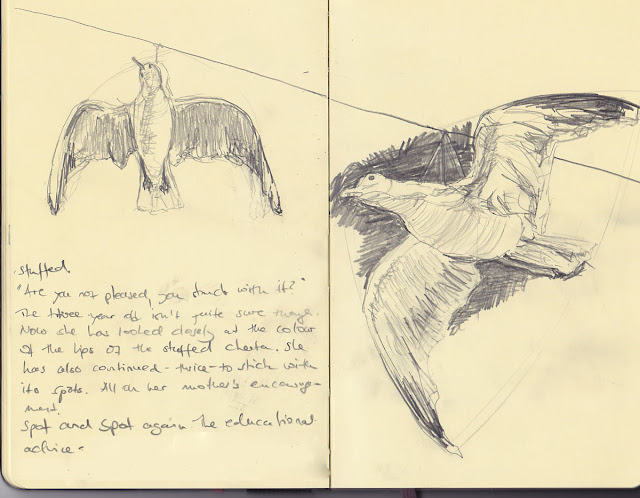 stuffed.
"Are you not pleased, you stuck with it?"
The three year old isn't quite sure though.
Now she has looked closely at the colour
of the lips of the stuffed cheeta. She
has also continued - twice - to stick with
its spots. All on her mother's encourage-
ment.
Spot and Spot again the educational
advice -